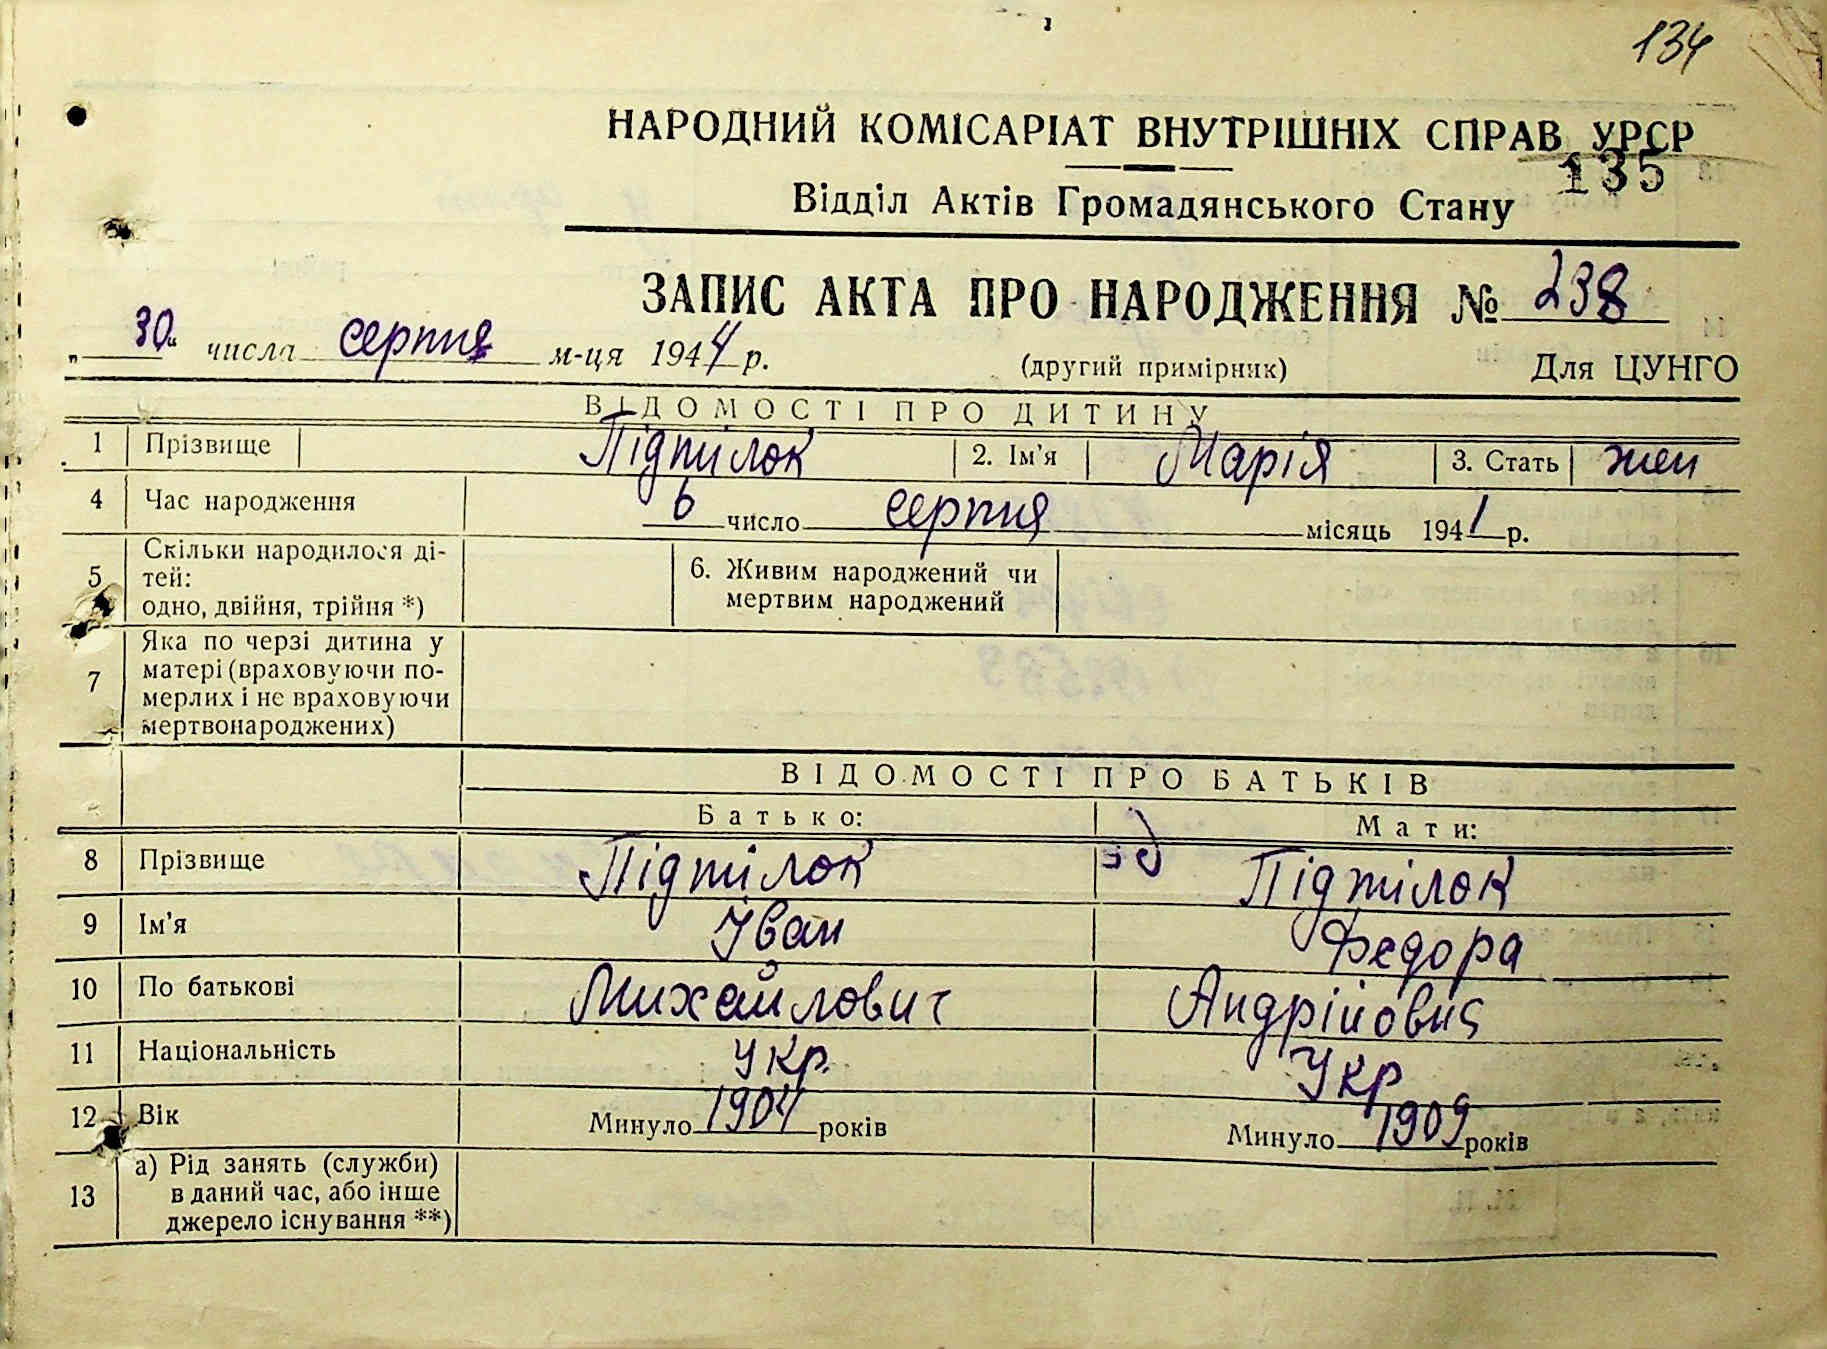 134
НАРОДНИЙ КОМІСАРІАТ ВНУТРІШНІХ СПРАВ УРСР
135
Відділ Актів Громадянського Стану
ЗАПИС АКТА ПРО НАРОДЖЕННЯ № 238
„30“ числа серпня м-ця 1944 р. (другий примірник) Для ЦУНГО
ВІДОМОСТІ ПРО ДИТИНУ
1 Прізвище Підпілок 2. Ім'я Марія 3. Стать жен
4 Час народження 6 число серпня місяць 1941 р.
5 Скільки народилося ді-
тей:
одно, двійня, трійня *)
6. Живим народжений чи
мертвим народжений
7 Яка по черзі дитина у
матері (враховуючи по-
мерлих і не враховуючи
мертвонароджених)
ВІДОМОСТІ ПРО БАТЬКІВ
Батько: Мати:
8 Прізвище Підпілок Підпілок
9 Ім'я Іван Федора
10 По батькові Михайлович Андрійовна
11 Національність Укр. Укр
12 Вік Минуло 1904 років Минуло 1909 років
13 а) Рід занять (служби)
в даний час, або інше
джерело існування **)